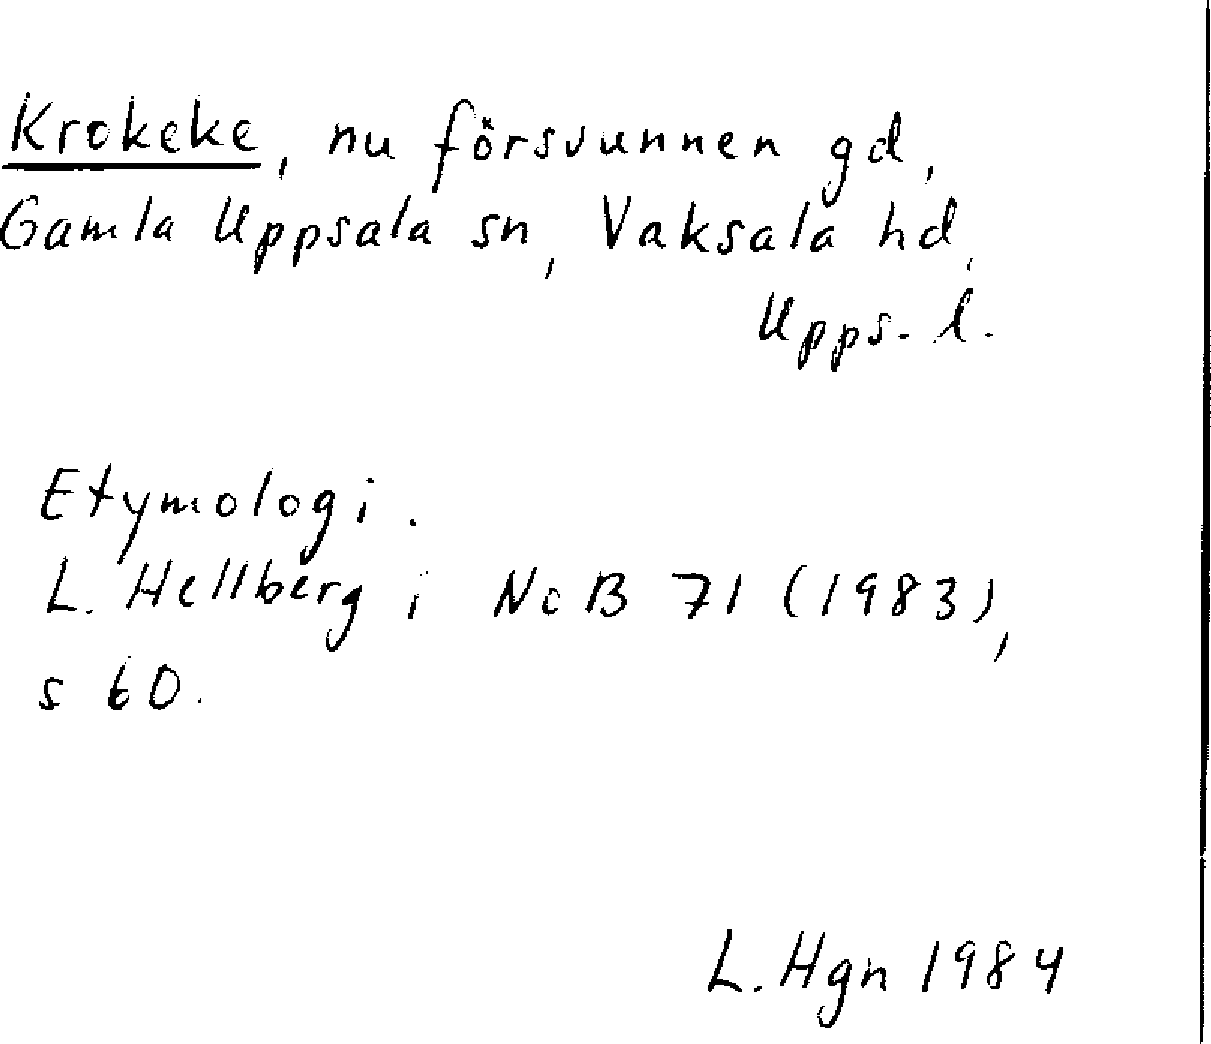 Krokeke, nu försvunnen gd,
Gamla Uppsala sn, Vaksala hd,
Upps. l.
Etymologi.
L. Hellberg i NoB 71 (1983),
s 60.
L. Hgn 1984